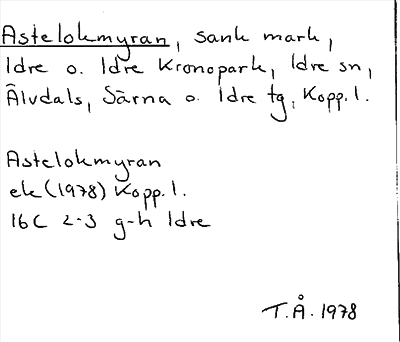 Astelokmyran, sank mark,
Idre o. Idre Kronopark, Idre sn,
Älvdals, Särna o. Idre tg, Kopp. l.
Astelokmyran
ek (1978) Kopp. l.
16C 2-3 g-h Idre
T.Å. 1978